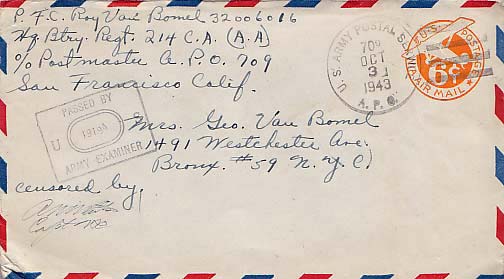 P.F.C. Roy Van Bomel 32006016
Hq. Btry. Regt. 214 C.A. (A.A)
c/o Postmaster A.P.O. 709
San Francisco Calif.
U.S. ARMY POSTAL SERVICE
709
OCT
3
1943
A.P.O.
U.S. POSTAGE
6¢
VIA AIR MAIL
PASSED BY
U
ARMY EXAMINER
Mrs. Geo. Van Bomel
1491 Westchester Ave.
Bronx. #59 N.Y.C.
censored by
Capt